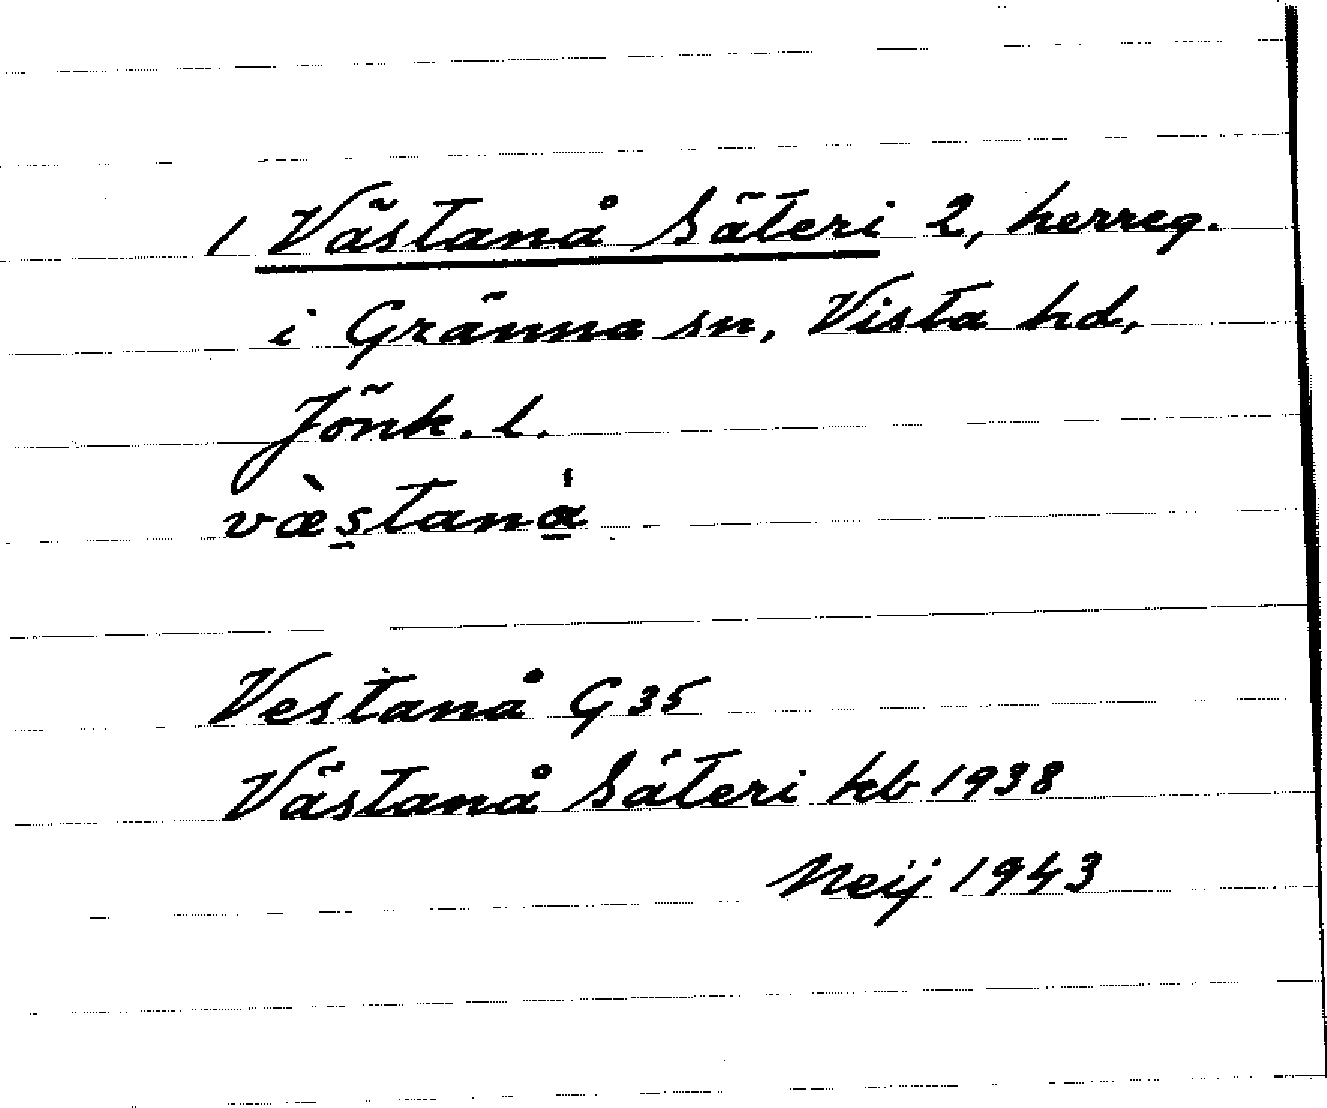 / Västanå Säteri 2, herreg.
i Gränna sn, Vista hd,
Jönk. l.
væ̀s̠taná̱
Vestanå G 35
Västanå Säteri kb 1938
Neij 1943